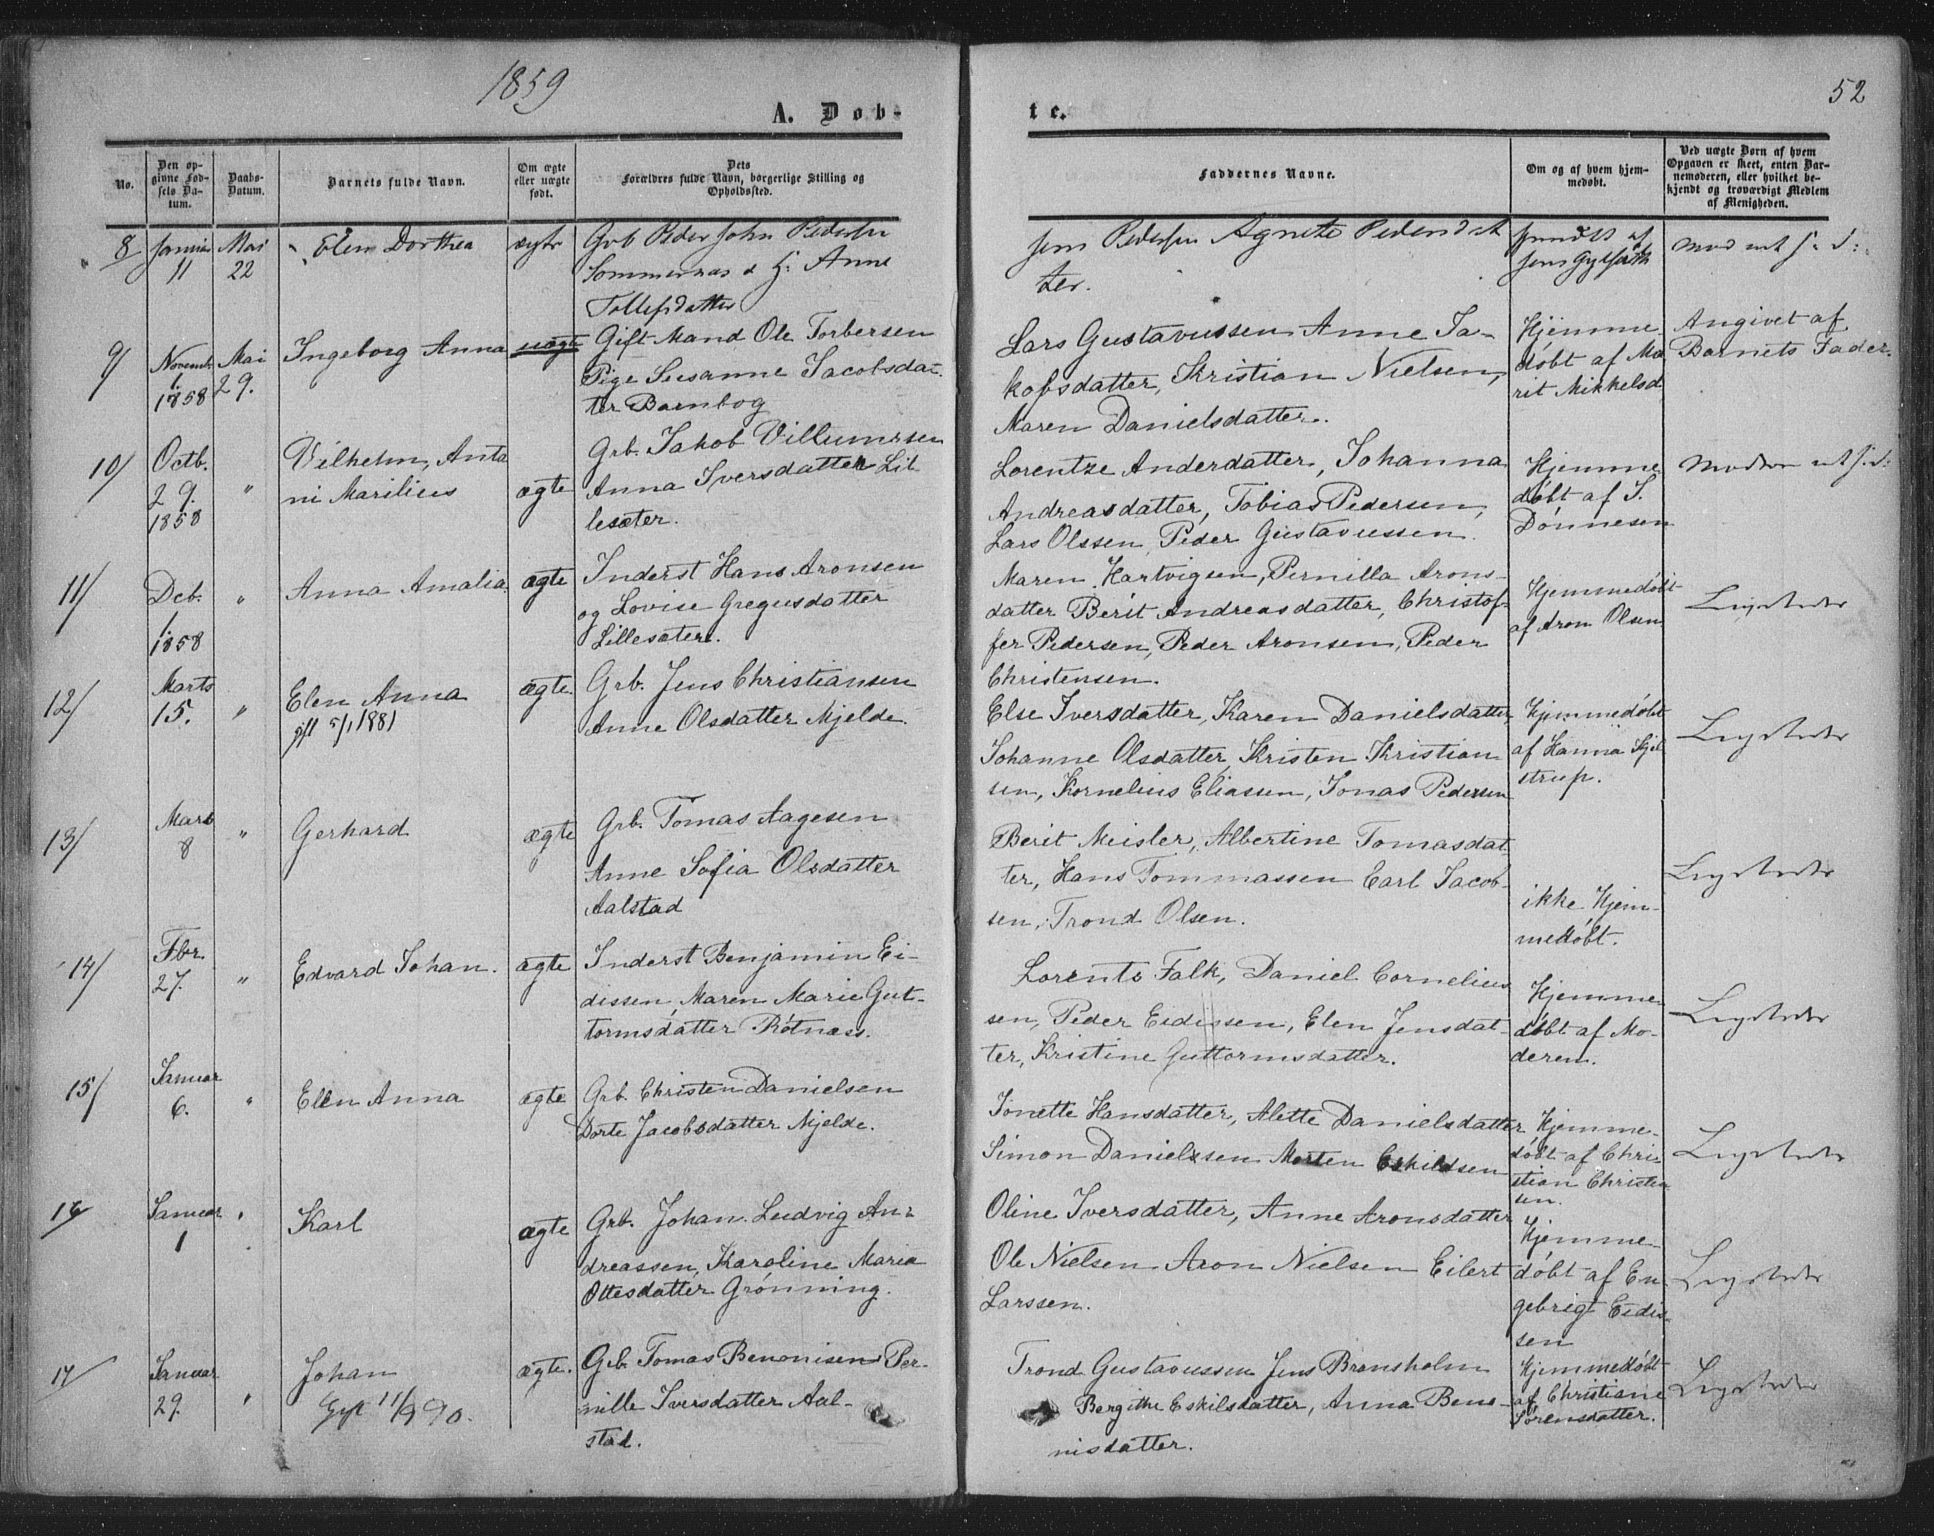 1859
52
A. Døb-
te.
No.
Den op-
givne Fød-
sels Da-
tum.
Daabs-
Datum.
Barnets fulde Navn.
Om ægte
eller uægte
født.
Dets
Forældres fulde Navn, borgerlige Stilling og
Opholdssted.
Faddernes Navne.
Om og af hvem hjem-
medøbt.
Ved uægte Børn af hvem
Opgaven er skeet, enten Bar-
nemoderen, eller hvilket be-
kjendt og troværdigt Medlem
af Menigheden.
8/
Januar
11
Mai
22
Elen Dorthea
ægte
Grb Peder John Pedersen
Sommernæs & H: Anne
Tollefsdatter
Jens Pedersen Agnete Pedersdat
ter.
Jens
9/
Novemb.
1.
1858
Mai
29.
Ingeborg Anna
uægte
Gift Mand Ole Torbersen
Pige Susanne Jacobsdat-
ter Barnbog
Lars Gustavussen Anne Ja-
kobsdatter, Kristian Nielsen,
Maren Danielsdatter.
Hjemme
døbt af Ma
rit Mikkelsd
Angivet af
Barnets Fader.
10/
Octb.
29.
1858
"
Vilhelm, Anto
ni Marilius
ægte
Grb. Jakob Villumssen
Anna Iversdatter Lil
lesæter.
Lorentze Anderdatter, Johanna
Andreasdatter, Tobias Pedersen,
Lars Olssen, Peder Gustavussen.
Hjemme
døbt af J.
Dønnesen
11/
Dcb.
1.
1858
"
Anna Amalia.
ægte
Inderst Hans Aronsen
og Lovise Gregusdatter
Lillesæter.
Maren Hartvigsen, Pernilla Arons-
datter Berit Andreasdatter, Christof-
fer Pedersen, Peder Aronsen, Peder
Christensen.
Hjemmedøbt
af Aron Olsen
Ligeledes
12/
Marts
15.
"
Elen Anna
gift 5/1 1881
ægte.
Grb. Jens Christiansen
Anne Olsdatter Mjelde.
Else Iversdatter, Karen Danielsdatter,
Johanne Olsdatter, Kristen Kristian
sen, Kornelius Eliassen, Jonas Pedersen
Hjemmedøbt
af Hanna Kjel
strup.
Ligeledes
13/
Marts
8
"
Gerhard
ægte
Grb. Tomas Aagesen
Anne Sofia Olsdatter
Aalstad
Berit Meisler, Albertine Tomasdat
ter, Hans Tommassen Carl Jacob-
sen, Trond Olsen.
ikke Hjem-
medøbt.
Ligeledes
14/
Fbr.
27.
"
Edvard Johan.
ægte
Inderst Benjamin Ei-
dissen, Maren Marie Gut-
tormsdatter Røtnæss.
Lorents Falk, Daniel Cornelius
sen, Peder Eidissen, Elen Jensdat-
ter, Kristine Guttormsdatter.
Hjemme-
døbt af Mo-
deren.
Ligeledes
15/
Januar
6.
"
Elen Anna
ægte
Grb. Christen Danielsen
Dorte Jacobsdatter Mjelde.
Jonette Hansdatter, Alette Danielsdatter
Simon Danielssen Morten Eskildsen
Hjemme-
døbt af Chri-
stian Christia
sen.
Ligeledes
16/
Januar
1
"
Karl
ægte
Grb. Johan Ludvig An-
dreassen, Karoline Maria
Ottesdatter Grønning.
Oline Iversdatter, Anne Aronsdatter
Ole Nielsen Aron Nielsen Eilert
Larssen.
Hjemme-
døbt af En
gebrigt Eidis
sen
Ligeledes
17/
Januar
29.
"
Johan
ægte.
Grb. Tomas Benonisen Per-
nille Iversdatter Aal-
stad.
Trond Gustavussen Jens Brønsholm
Bergithe Eskilsdatter, Anna Beno-
nisdatter.
Hjemmedøbt
af Christiane
Sørensdatter.
Ligeledes